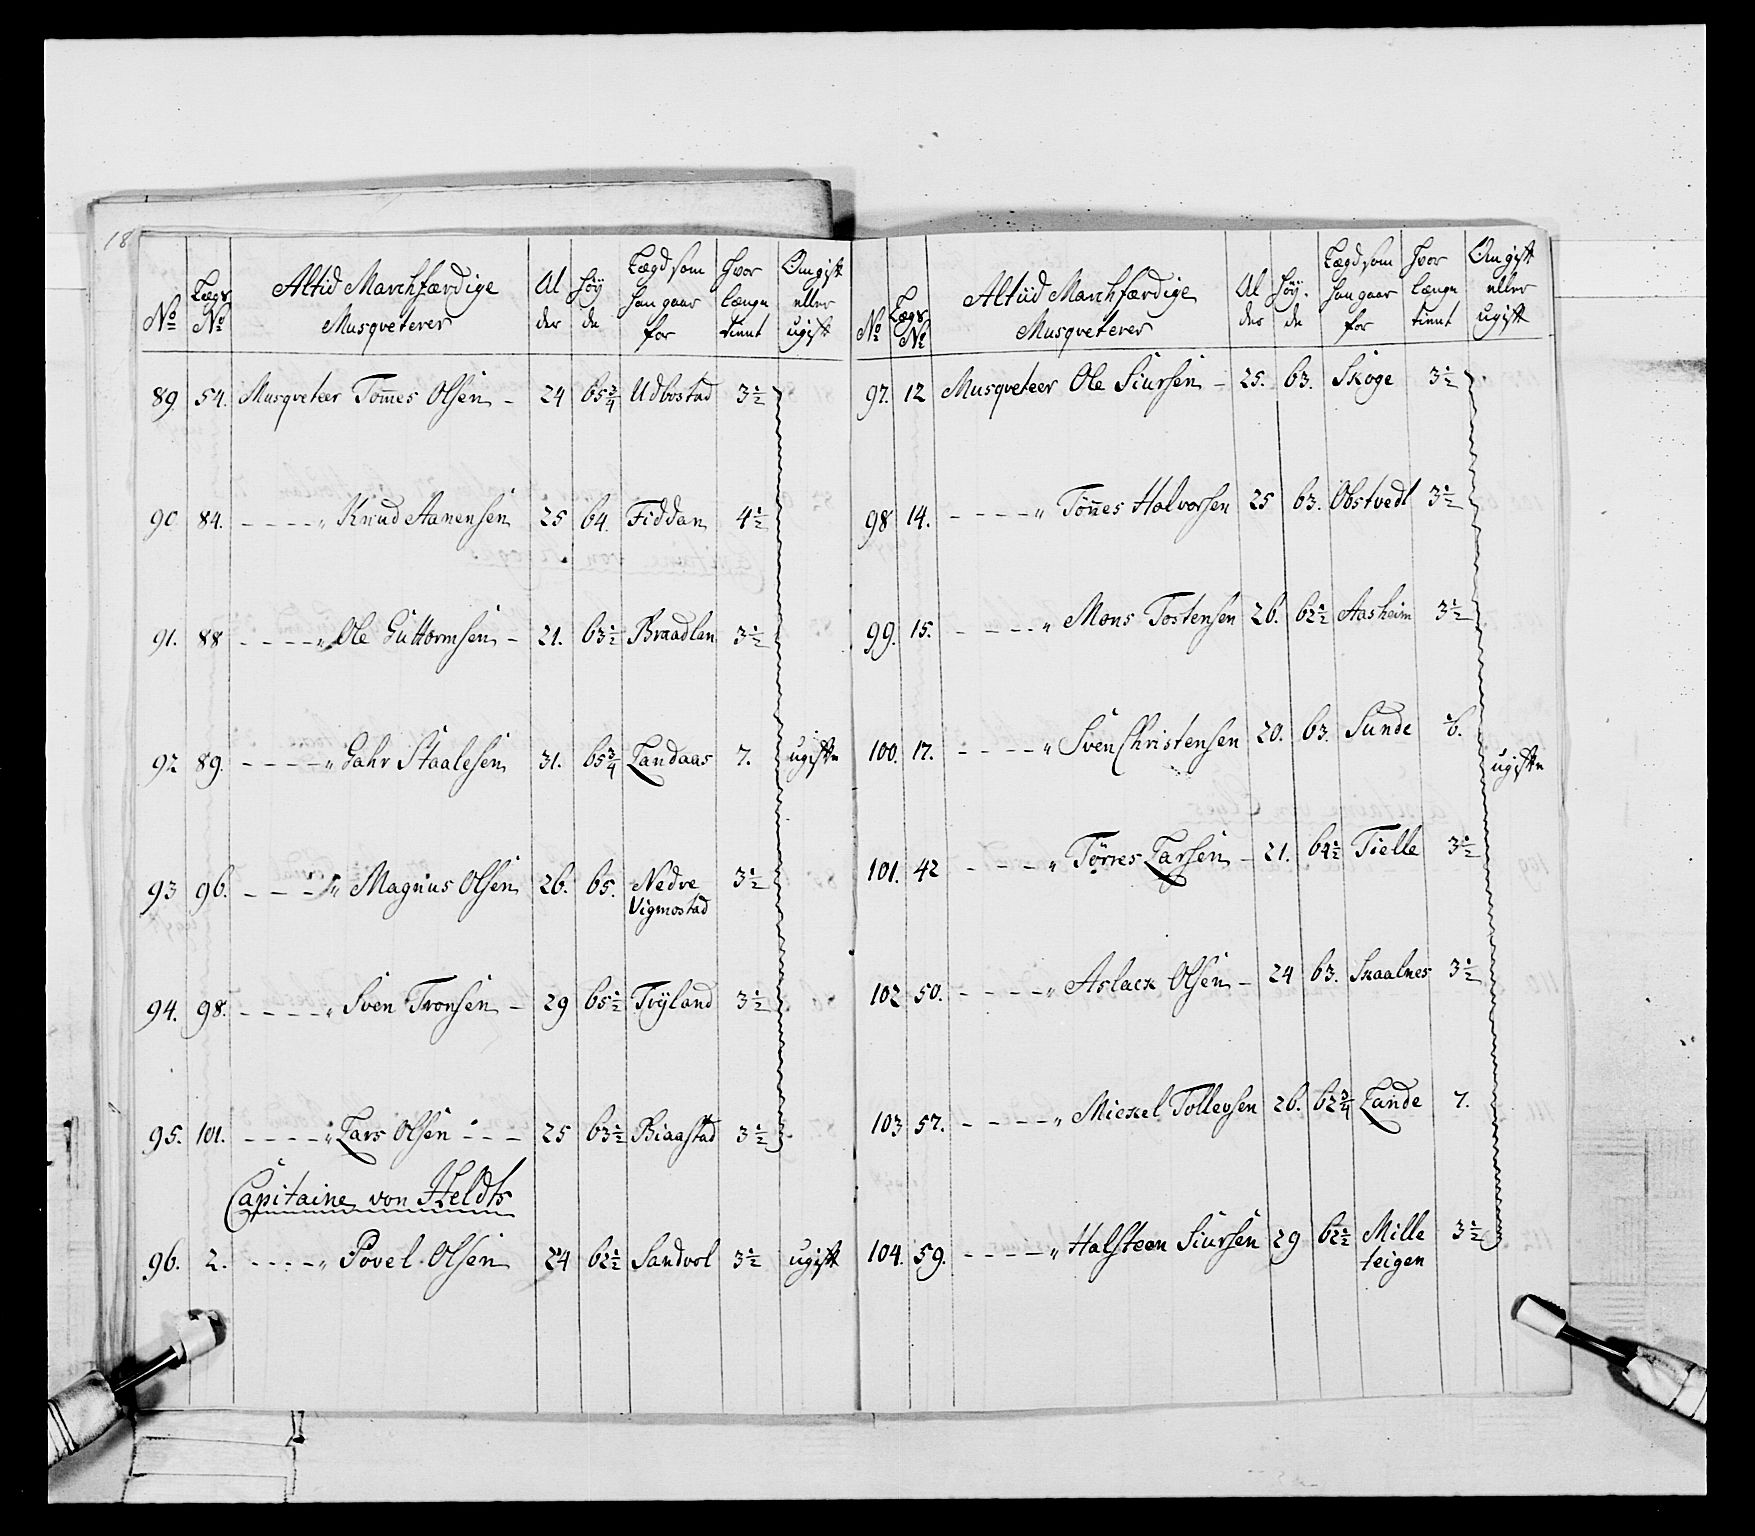 18
No Lægs No Altid Marchfærdige Musqveterer Al der Høy de Lægd som han gaar for Hvor længe tient Om gift eller ugift
89. 54. Musqveteer Tom̄es Olsen - 24 65 3/4 Udbostad 3 1/2
90 84. - - - - " Knud Aanensen 25 64. Fiddan 4 1/2
91. 88 - - - - " Ole Guttormsen - 21. 63 1/2 Braadlan 3 1/2
92 89. - - - - " Gahr Staalesen 31. 65 3/4 Landaas 7. ugifte
93 96. - - - - " Magnus Olsen 26. 65. Nedre 3 1/2
Vigmostad
94. 98. - - - - " Sven Tronsen - 29 65 1/2 Trÿland 3 1/2
95. 101. - - - - " Lars Olsen - - - 25 63 1/2 Biaastad 3 1/2
Capitaine von Heldts
96. 2. - - - - " Povel Olsen 24 62 1/2 Sandvol 3 1/2 ugift
No Lægs No Altid Marchfærdige Musqveterer Al der Høÿ. de Lægd som han gaar for Hvor længe tient Om gift eller ugift
97. 12 Musqveteer Ole Siursen - 25. 63. Skoge 3 1/2
98 14. - - - - " Tön̄es Halvorsen 25 63. Obstvedt 3 1/2
99. 15. - - - - " Mons Tostensen 26. 62 1/2 Aasheim 3 1/2
100. 17. - - - - " Sven Christensen 20. 63. Sunde 6. ugifte
101. 42 - - - - " Törres Larsen - 21. 64 1/2 Tielle 3 1/2
102 50. - - - - " Aslack Olsen - 24 63. Skaalnes 3 1/2
103 57. - - - - " Mickel Tollevsen 26. 62 3/4 Lande 7.
104. 59. - - - - " Halsteen Siursen 29 62 1/2 Mille 3 1/2
teigen